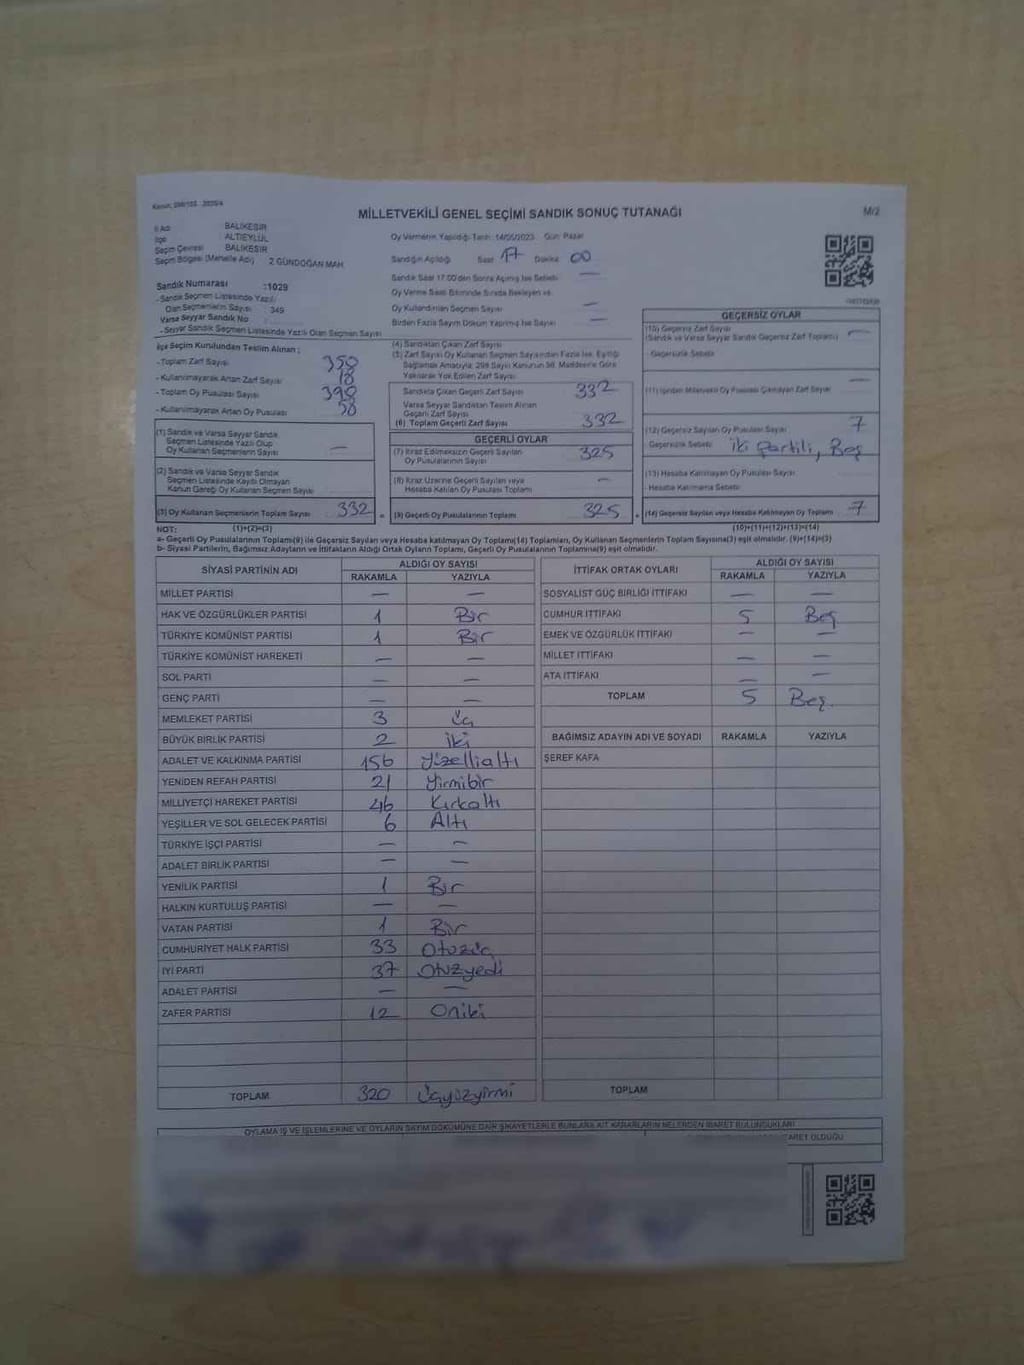 MİLLETVEKİLİ GENEL SEÇİMİ SANDIK SONUÇ TUTANAĞI
M/2
İl Adı BALIKESİR
İlçe ALTIEYLÜL
Seçim Çevresi BALIKESİR
Seçim Bölgesi (Mahalle Adı) 2 GÜNDOĞAN MAH.
Sandık Numarası :1029
- Sandık Seçmen Listesinde Yazılı
Olan Seçmenlerin Sayısı 349
Varsa Seyyar Sandık No
- Seyyar Sandık Seçmen Listesinde Yazılı Olan Seçmen Sayısı
Oy Vermenin Yapıldığı Tarih: 14/05/2023 Gün: Pazar
Sandığın Açıldığı Saat 17 Dakika 00
Sandık Saat 17.00'den Sonra Açılmış İse Sebebi —
Oy Verme Saati Bitiminde Sırada Bekleyen ve
Oy Kullandırılan Seçmen Sayısı —
Birden Fazla Sayım Döküm Yapılmış İse Sayısı —
İlçe Seçim Kurulundan Teslim Alınan ;
- Toplam Zarf Sayısı 350
- Kullanılmayarak Artan Zarf Sayısı 18
- Toplam Oy Pusulası Sayısı 390
- Kullanılmayarak Artan Oy Pusulası 58
(1) Sandık ve Varsa Seyyar Sandık
Seçmen Listesinde Yazılı Olup
Oy Kullanan Seçmenlerin Sayısı —
(2) Sandık ve Varsa Seyyar Sandık
Seçmen Listesinde Kayıtlı Olmayan
Kanun Gereği Oy Kullanan Seçmen Sayısı
(3) Oy Kullanan Seçmenlerin Toplam Sayısı 332
(4) Sandıktan Çıkan Zarf Sayısı
(5) Zarf Sayısı Oy Kullanan Seçmen Sayısından Fazla İse, Eşitliği
Sağlamak Amacıyla; 298 Sayılı Kanunun 98. Maddesine Göre
Yakılarak Yok Edilen Zarf Sayısı
Sandıkta Çıkan Geçerli Zarf Sayısı 332
Varsa Seyyar Sandıktan Teslim Alınan
Geçerli Zarf Sayısı
(6) Toplam Geçerli Zarf Sayısı 332
GEÇERLİ OYLAR
(7) İtiraz Edilmeksizin Geçerli Sayılan
Oy Pusulalarının Sayısı 325
(8) İtiraz Üzerine Geçerli Sayılan veya
Hesaba Katılan Oy Pusulası Toplamı —
= (9) Geçerli Oy Pusulalarının Toplamı 325
GEÇERSİZ OYLAR
(10) Geçersiz Zarf Sayısı
(Sandık ve Varsa Seyyar Sandık Geçersiz Zarf Toplamı) —
- Geçersizlik Sebebi
(11) İçinden Milletvekili Oy Pusulası Çıkmayan Zarf Sayısı —
(12) Geçersiz Sayılan Oy Pusulası Sayısı 7
Geçersizlik Sebebi: İki Partili, Boş
(13) Hesaba Katılmayan Oy Pusulası Sayısı
- Hesaba Katılmama Sebebi
+ (14) Geçersiz Sayılan veya Hesaba Katılmayan Oy Toplamı 7
NOT: (1)+(2)=(3) (10)+(11)+(12)+(13)=(14)
a- Geçerli Oy Pusulalarının Toplamı(9) ile Geçersiz Sayılan veya Hesaba katılmayan Oy Toplamı(14) Toplamları, Oy Kullanan Seçmenlerin Toplam Sayısına(3) eşit olmalıdır. (9)+(14)=(3)
b- Siyasi Partilerin, Bağımsız Adayların ve İttifakların Aldığı Ortak Oyların Toplamı, Geçerli Oy Pusulalarının Toplamına(9) eşit olmalıdır.
SİYASİ PARTİNİN ADI ALDIĞI OY SAYISI
RAKAMLA YAZIYLA
MİLLET PARTİSİ — —
HAK VE ÖZGÜRLÜKLER PARTİSİ 1 Bir
TÜRKİYE KOMÜNİST PARTİSİ 1 Bir
TÜRKİYE KOMÜNİST HAREKETİ — —
SOL PARTİ — —
GENÇ PARTİ — —
MEMLEKET PARTİSİ 3 Üç
BÜYÜK BİRLİK PARTİSİ 2 İki
ADALET VE KALKINMA PARTİSİ 156 Yüzellialtı
YENİDEN REFAH PARTİSİ 21 Yirmibir
MİLLİYETÇİ HAREKET PARTİSİ 46 Kırkaltı
YEŞİLLER VE SOL GELECEK PARTİSİ 6 Altı
TÜRKİYE İŞÇİ PARTİSİ — —
ADALET BİRLİK PARTİSİ — —
YENİLİK PARTİSİ 1 Bir
HALKIN KURTULUŞ PARTİSİ — —
VATAN PARTİSİ 1 Bir
CUMHURİYET HALK PARTİSİ 33 Otuzüç
İYİ PARTİ 37 Otuzyedi
ADALET PARTİSİ — —
ZAFER PARTİSİ 12 Oniki
TOPLAM 320 Üçyüzyirmi
İTTİFAK ORTAK OYLARI ALDIĞI OY SAYISI
RAKAMLA YAZIYLA
SOSYALİST GÜÇ BİRLİĞİ İTTİFAKI — —
CUMHUR İTTİFAKI 5 Beş
EMEK VE ÖZGÜRLÜK İTTİFAKI — —
MİLLET İTTİFAKI — —
ATA İTTİFAKI — —
TOPLAM 5 Beş
BAĞIMSIZ ADAYIN ADI VE SOYADI RAKAMLA YAZIYLA
ŞEREF KAFA
TOPLAM
OYLAMA İŞ VE İŞLEMLERİNE VE OYLARIN SAYIM DÖKÜMÜNE DAİR ŞİKAYETLERLE BUNLARA AİT KARARLARIN NELERDEN İBARET BULUNDUKLARI
OLDUĞU